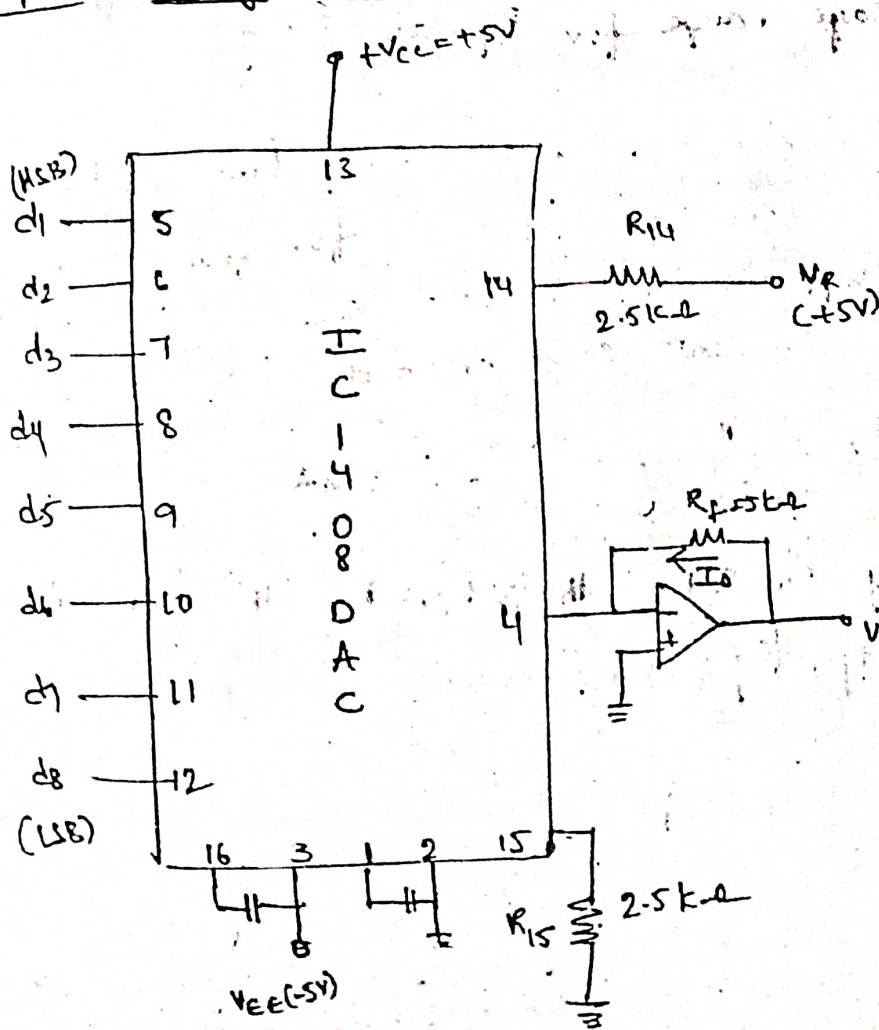 +VCC = +5V
13
(MSB)
d1 5
d2 6
d3 7
d4 8
d5 9
d6 10
d7 11
d8 12
(LSB)
I
C
1
4
0
8
D
A
C
R14
14
2.5kΩ
VR
(+5V)
Rf = 5kΩ
I0
-
+
4
V
16 3 1 2 15
R15 2.5kΩ
VEE(-5V)